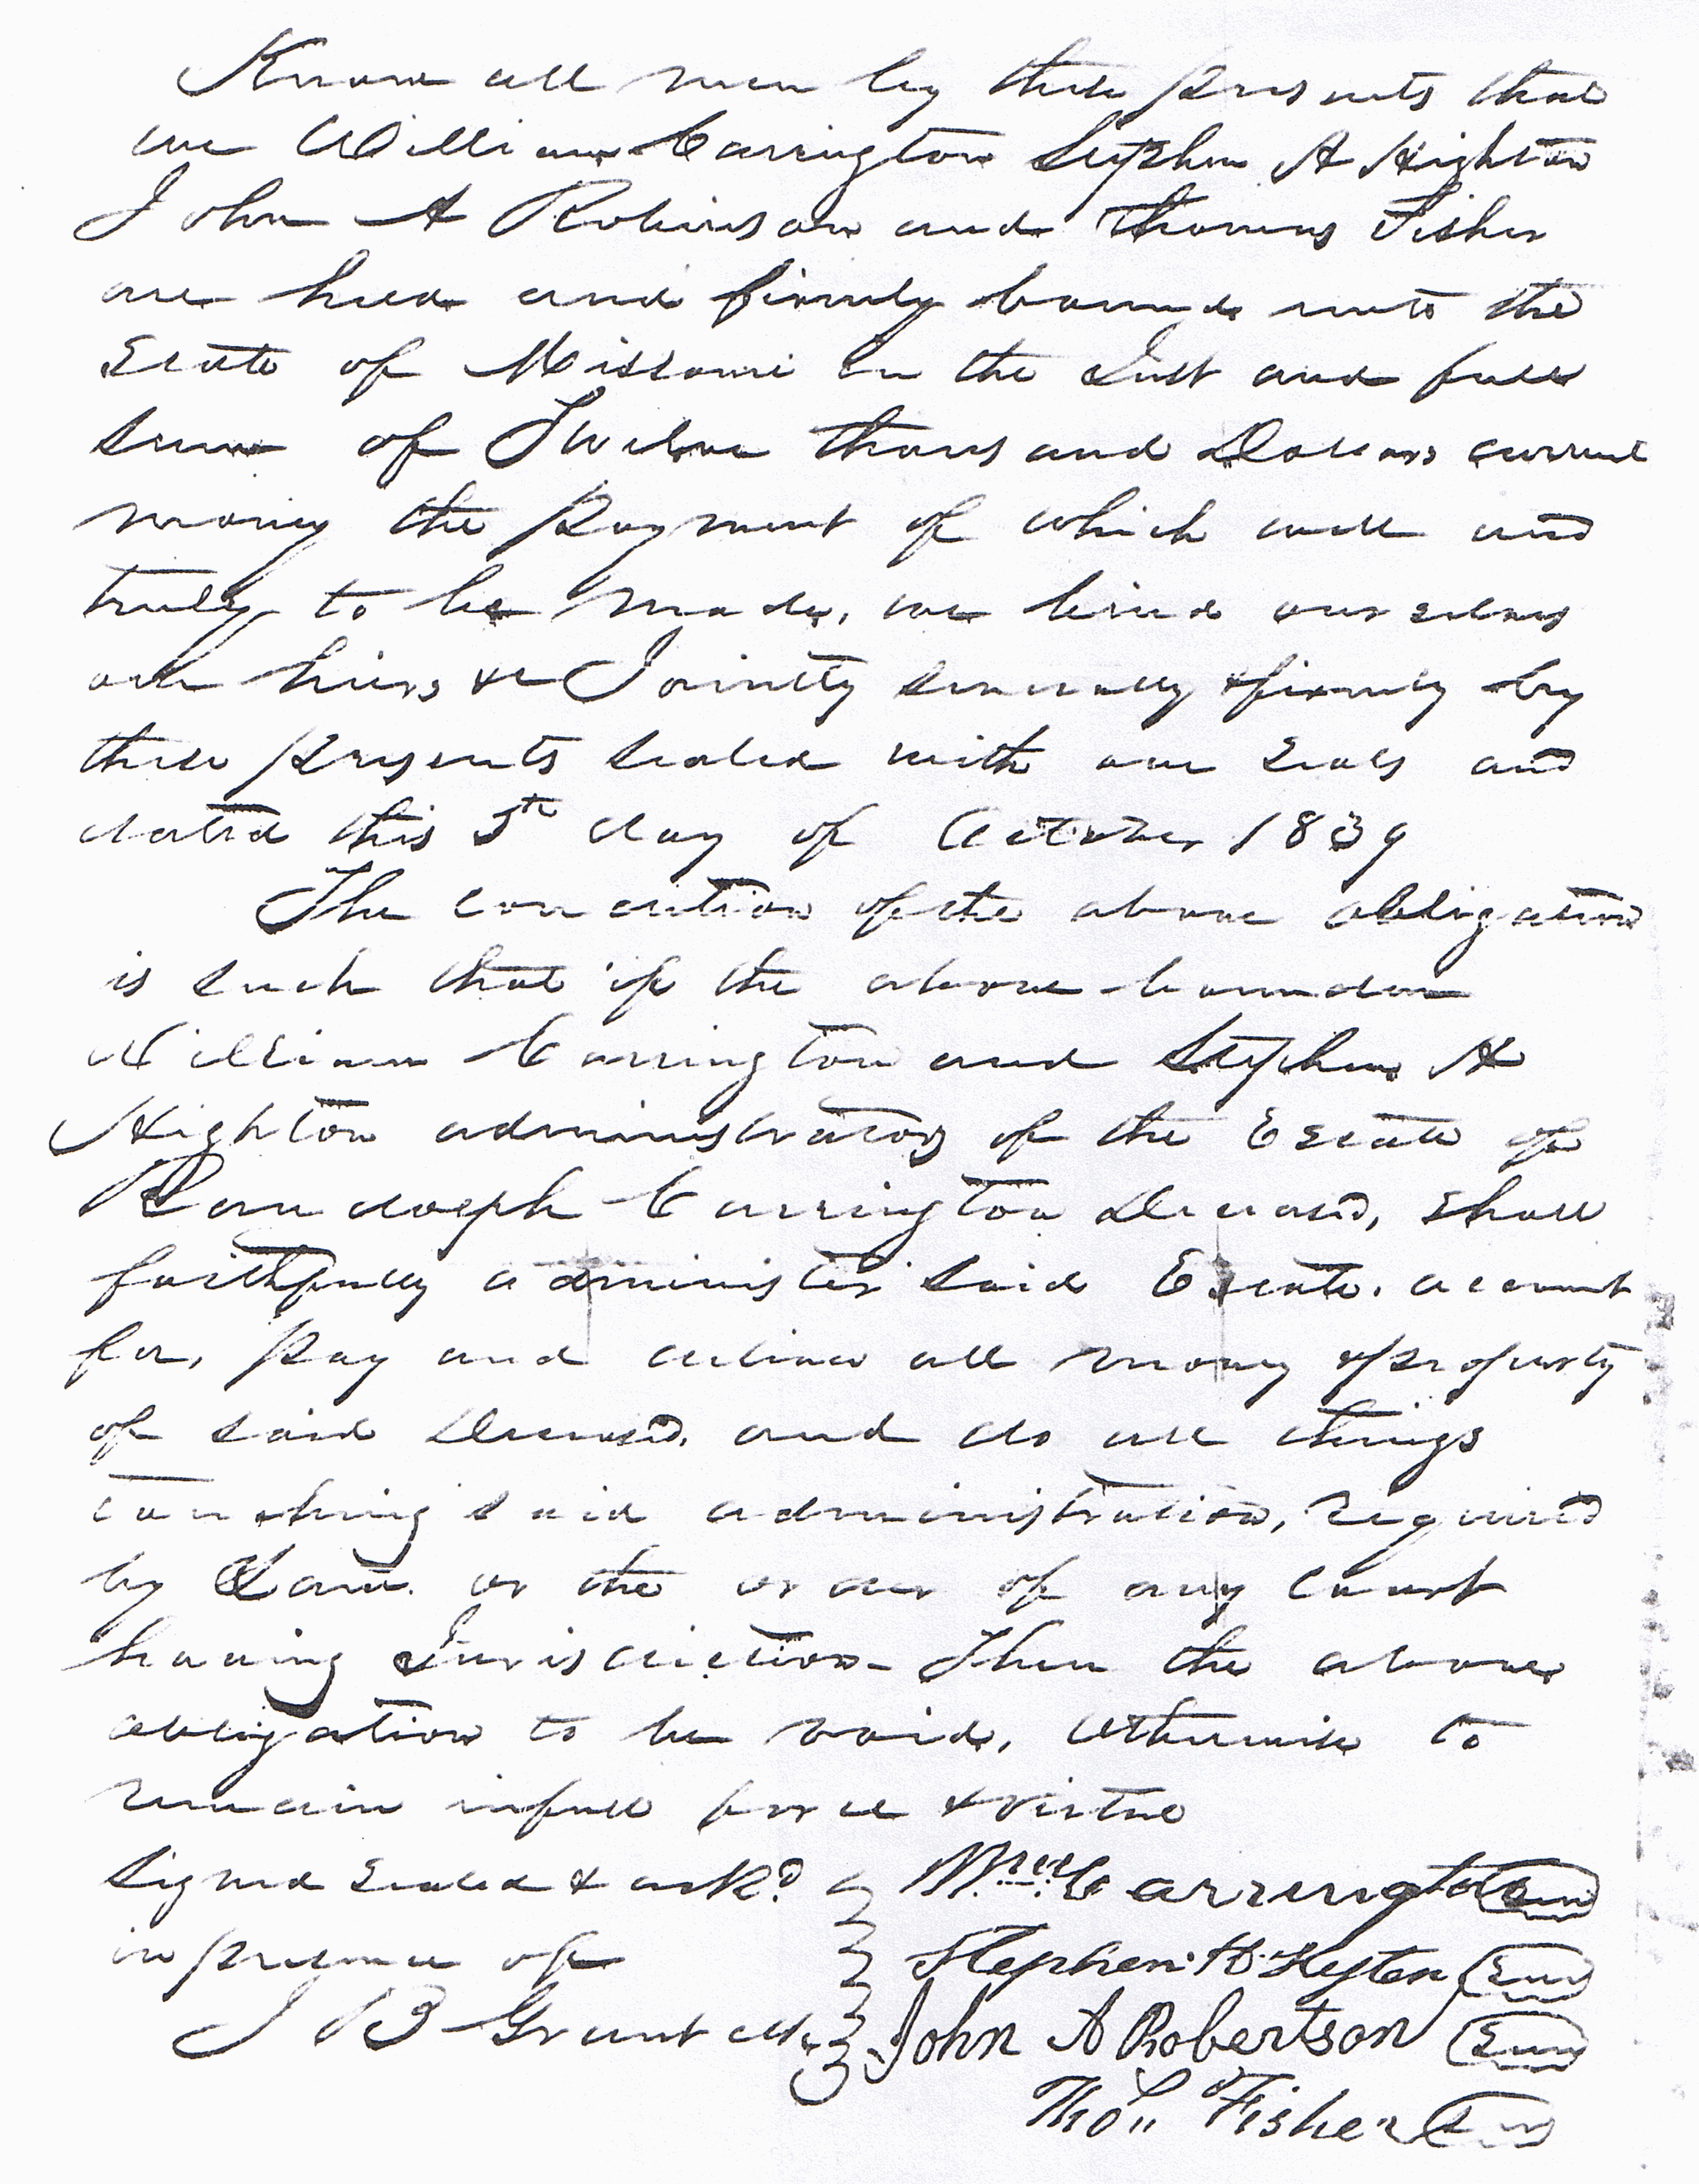 Know all men by these presents that
we William Carrington Stephen H Highton
John A Robinson and Thomas Fisher
are held and firmly bound unto the
State of Missouri in the Just and full
sum of Twelve thousand Dollars current
money the Payment of which well and
truly to be made, we bind ourselves
our heirs &c Jointly severally & firmly by
these presents sealed with our seals and
dated this 5th day of October 1839
The condition of the above obligation
is such that if the above bounden
William Carrington and Stephen H
Highton administrators of the Estate of
Randolph Carrington Deceased, shall
faithfully administer said Estate, account
for, pay and deliver all money & property
of said Deceased, and do all things
touching said administration, required
by Law. or the order of any Court
having Jurisdiction - Then the above
obligation to be void, otherwise to
remain in full force & virtue
Signed sealed & ackd Wm Carrington Seal
in presence of Stephen H. Hyten Seal
J B Grant clk John A Robertson Seal
Thos Fisher Seal